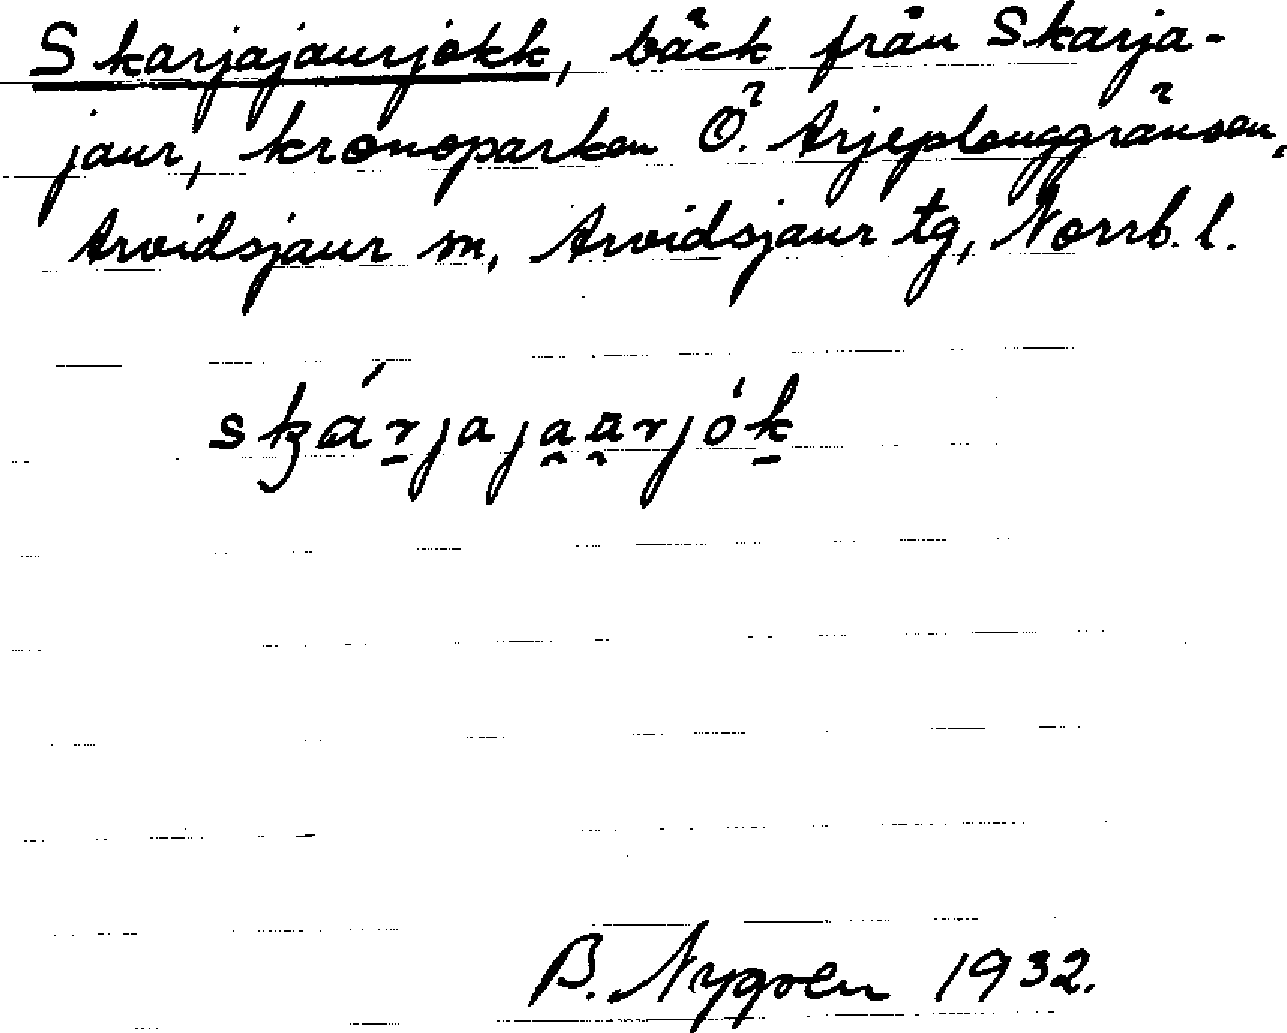 Skarjajaurjåkk, bäck från Skarja-
jaur, kronoparken Ö. Arjeplouggränsen,
Arvidsjaur sn, Arvidsjaur tg, Norrb. l.
skárjajaarjók
B. Nygren 1932.